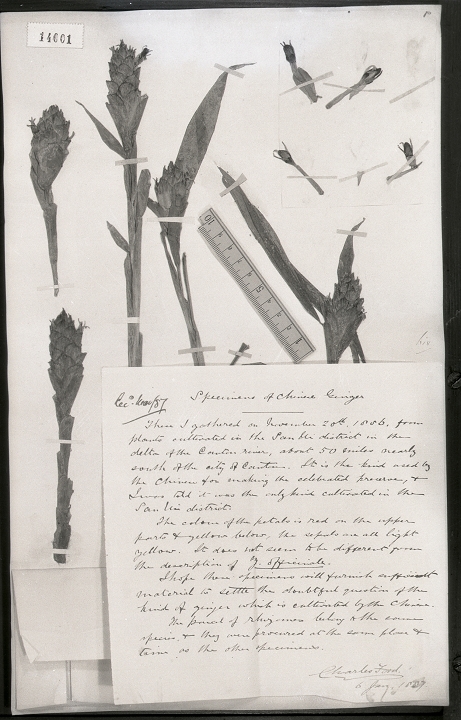 14001
10
5
Rec'd
Specimens of Chinese Ginger
These I gathered on November 20th, 1886, from
plants cultivated in the San Ui district in the
delta of the Canton river, about 50 miles nearly
south of the city of Canton. It is the kind used by
the Chinese for making the celebrated preserve, &
I was told it was the only kind cultivated in the
San Ui district.
The colour of the petals is red on the upper
parts & yellow below, the sepals are all light
yellow. It does not seem to be different from
the description of Z. officinale.
I hope these specimens will furnish sufficient
material to settle the doubtful question of the
kind of ginger which is cultivated by the Chinese.
The parcel of rhizomes belong to the same
species, & they were procured at the same place &
time as the other specimens.
Charles Ford
6 Jany. 1887